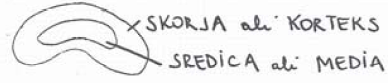 SKORJA ali KORTEKS
SREDICA ali MEDIA